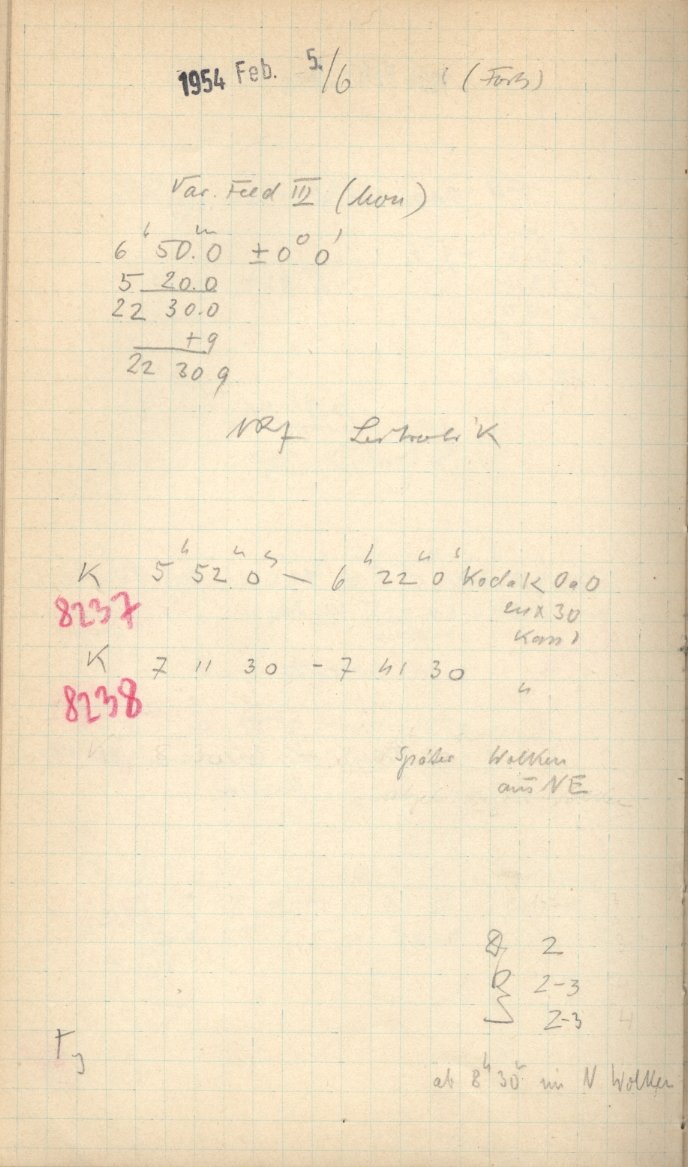 1954 Feb. 5./6 (Forts)
Var. Feld III (Mon)
6ʰ 50ᵐ.0 ±0° 0'
5 20.0
22 30.0
+9
22 30 9
K 5ʰ 52ᵐ 0ˢ — 6ʰ 22ᵐ 0ˢ Kodak OaO
8237
K 7 11 30 - 7 41 30 "
8238
Später Wolken
aus NE
2
2-3
2-3
ab 8ʰ 30ᵐ im N Wolken